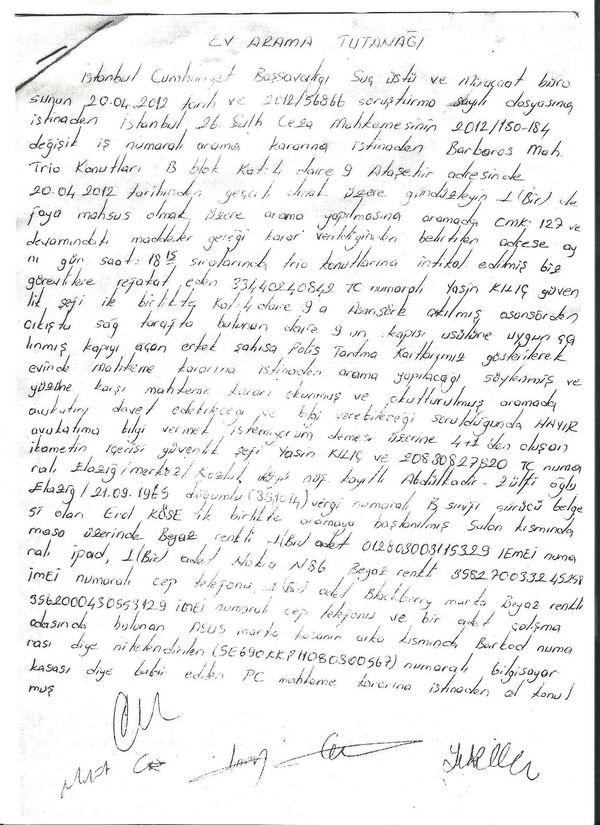 EV ARAMA TUTANAĞI
İstanbul Cumhuriyet Başsavcılığı Suç üstü ve Müracaat büro
sunun 20.04.2012 tarih ve 2012/56866 soruşturma sayılı dosyasına
istinaden İstanbul 26. Sulh Ceza Mahkemesinin 2012/150-184
değişik iş numaralı arama kararına istinaden Barbaros Mah.
Trio Konutları B blok Kat:4 daire 9 Ataşehir adresinde
20.04.2012 tarihinden geçerli olmak üzere gündüzleyin 1(Bir) de
faya mahsus olmak üzere arama yapılmasına aramada CMK 127 ve
devamındaki maddeler gereği karar verildiğinden belirtilen adrese ay
nı gün saat: 18 15 sıralarında trio konutlarına intikal edilmiş biz
görevlilere refakat eden 33440240842 TC numaralı Yasin KILIÇ güven
lik şefi ile birlikte Kat:4 daire 9 a Asansörle çıkılmış asansörden
çıkıştu sağ tarafta bulunan daire 9 un kapısı usülüne uygun ça
lınmış kapıyı açan erkek şahısa Polis Tanıtma Kartlarımız gösterilerek
evinde mahkeme kararına istinaden arama yapılacağı söylenmiş ve
yüzüne karşı mahkeme kararı okunmuş ve okutturulmuş aramada
avukatını davet edebileceği ve bilgi verebileceği sorulduğunda HAYIR
avukatıma bilgi vermek istemiyorum demesi üzerine 4+1'den oluşan
ikametin içerisi güvenlik şefi Yasin KILIÇ ve 20830827820 TC numa
ralı Elazığ/merkez/ köyü nüf. kayıtlı Abdülkadir - Zülfü oğlu
Elazığ/21.09.1965 doğumlu vergi numaralı B sınıfı sürücü belge
si olan Erol KÖSE ile birlikte aramaya başlanılmış Salon kısmında
masa üzerinde Beyaz renkli 1(Bir) adet 012803003115329 IEMEİ numa
ralı ipad, 1(Bir) adet Nokia N86 Beyaz renkli
imei numaralı cep telefonu, 1(Bir) adet Blackberry marka Beyaz renkli
3562000430553129 imei numaralı cep telefonu ve bir adet çalışma
odasında bulunan ASUS marka kasanın arka kısmında Barkod numa
rası diye nitelendirilen numaralı bilgisayar
kasası diye tabir edilen PC mahkeme kararına istinaden el konul
muş